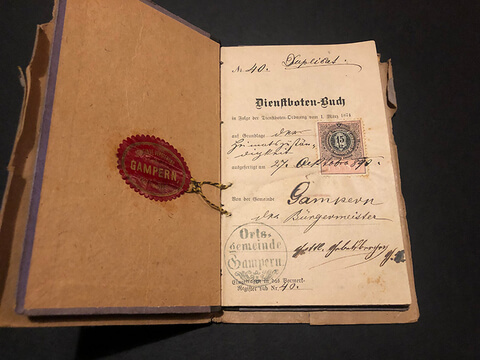 GAMPERN
№ 40.
Duplikat.
Dienstboten-Buch
in Folge der Dienstboten-Ordnung vom 1. März 1874
auf Grundlage des
Heimatszustän-
digkeit
15
ausgefertigt am 27. Oktober
Von der Gemeinde Gampern
der Bürgermeister
Orts-
gemeinde
Gampern
Eingetragen in das Vormerk-
Register sub Nr. 40.